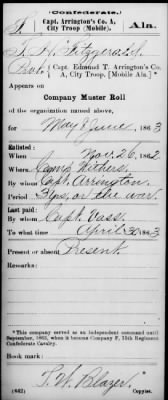 (Confederate.)
F Capt. Arrington's Co. A, City Troop (Mobile), Ala.
T. H. Fitzgerald
Pvt., Capt. Edmund T. Arrington's Co. A, City Troop, [Mobile Ala.]
Appears on
Company Muster Roll
of the organization named above,
for May & June, 1863
Enlisted:
When Nov. 26, 1862
Where Camp Withers
By whom Capt. Arrington
Period 3 yrs, or the war
Last paid:
By whom Capt. Vass
To what time April 30, 1863
Present or absent Present
Remarks:
*This company served as an independent command until
September, 1863, when it became Company F, 15th Regiment
Confederate Cavalry.
Book mark:
(642) Copyist.